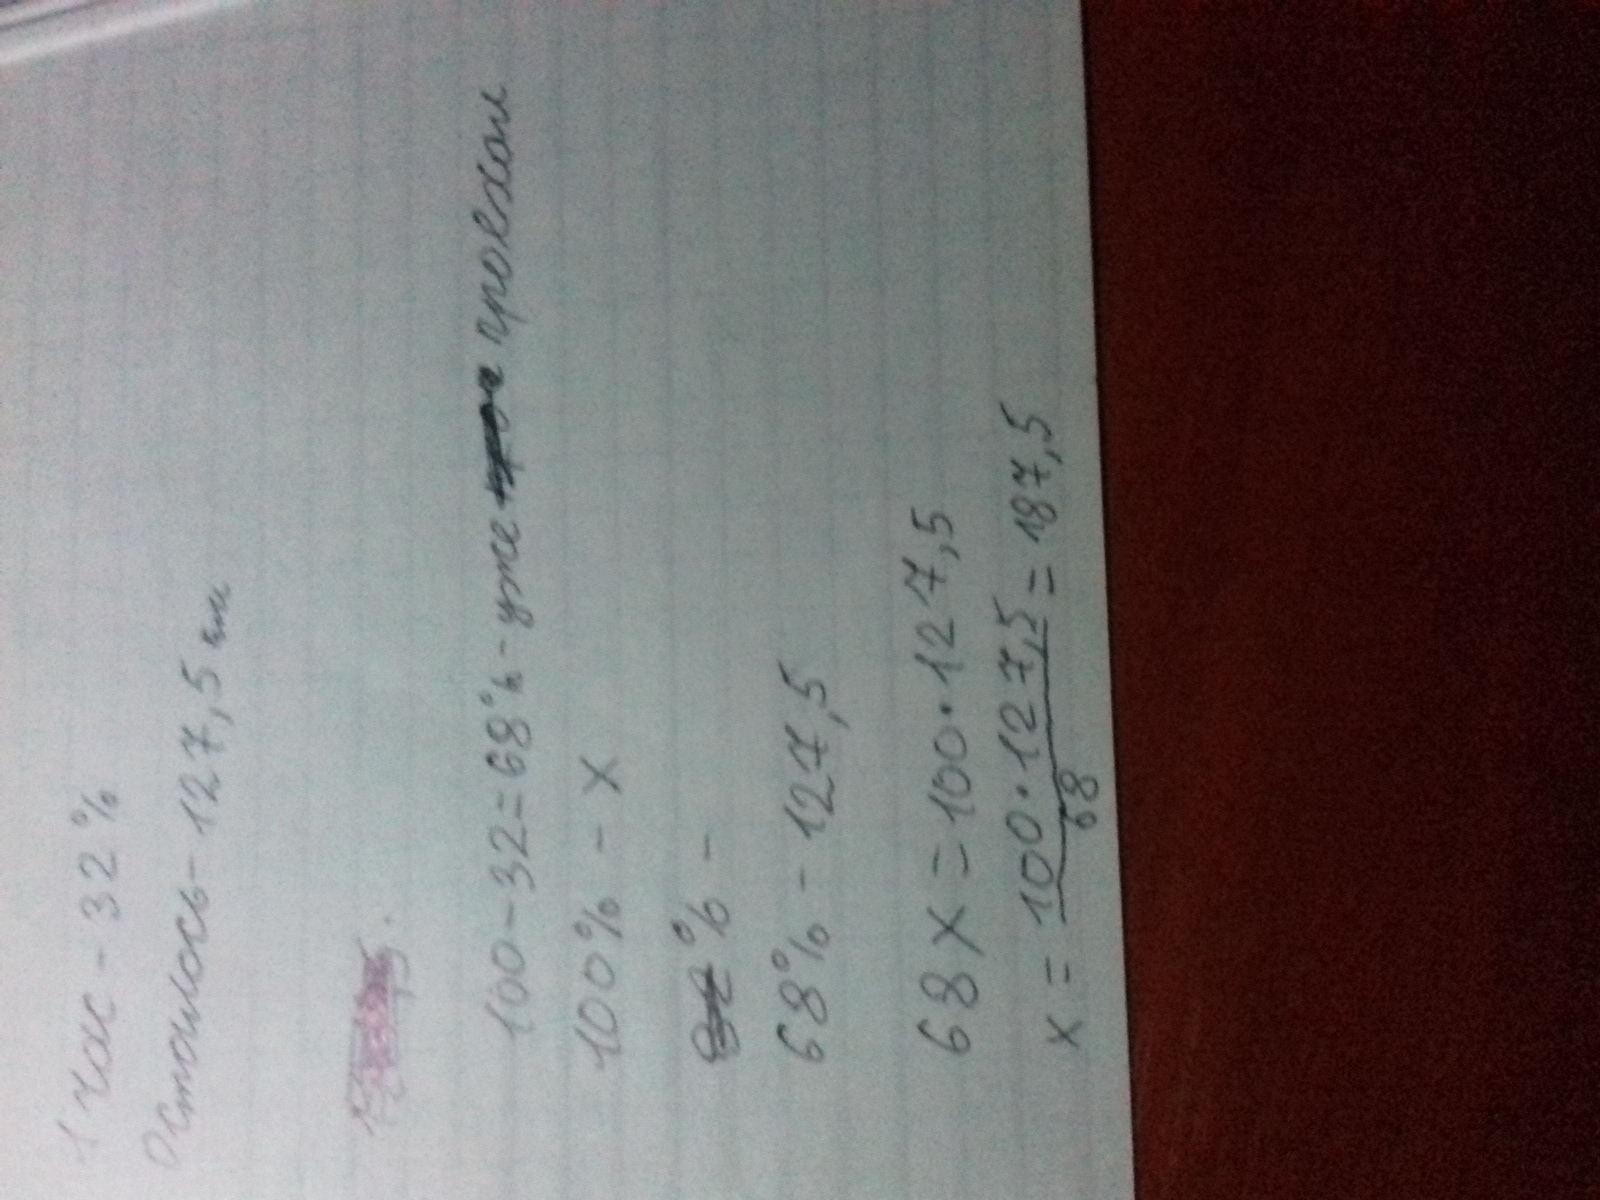 1 час - 32%
Осталось - 127,5 км
100-32=68% - уже проехали
100% - х
% -
68% - 127,5
68х = 100·127,5
х = 100·127,5 / 68 = 187,5